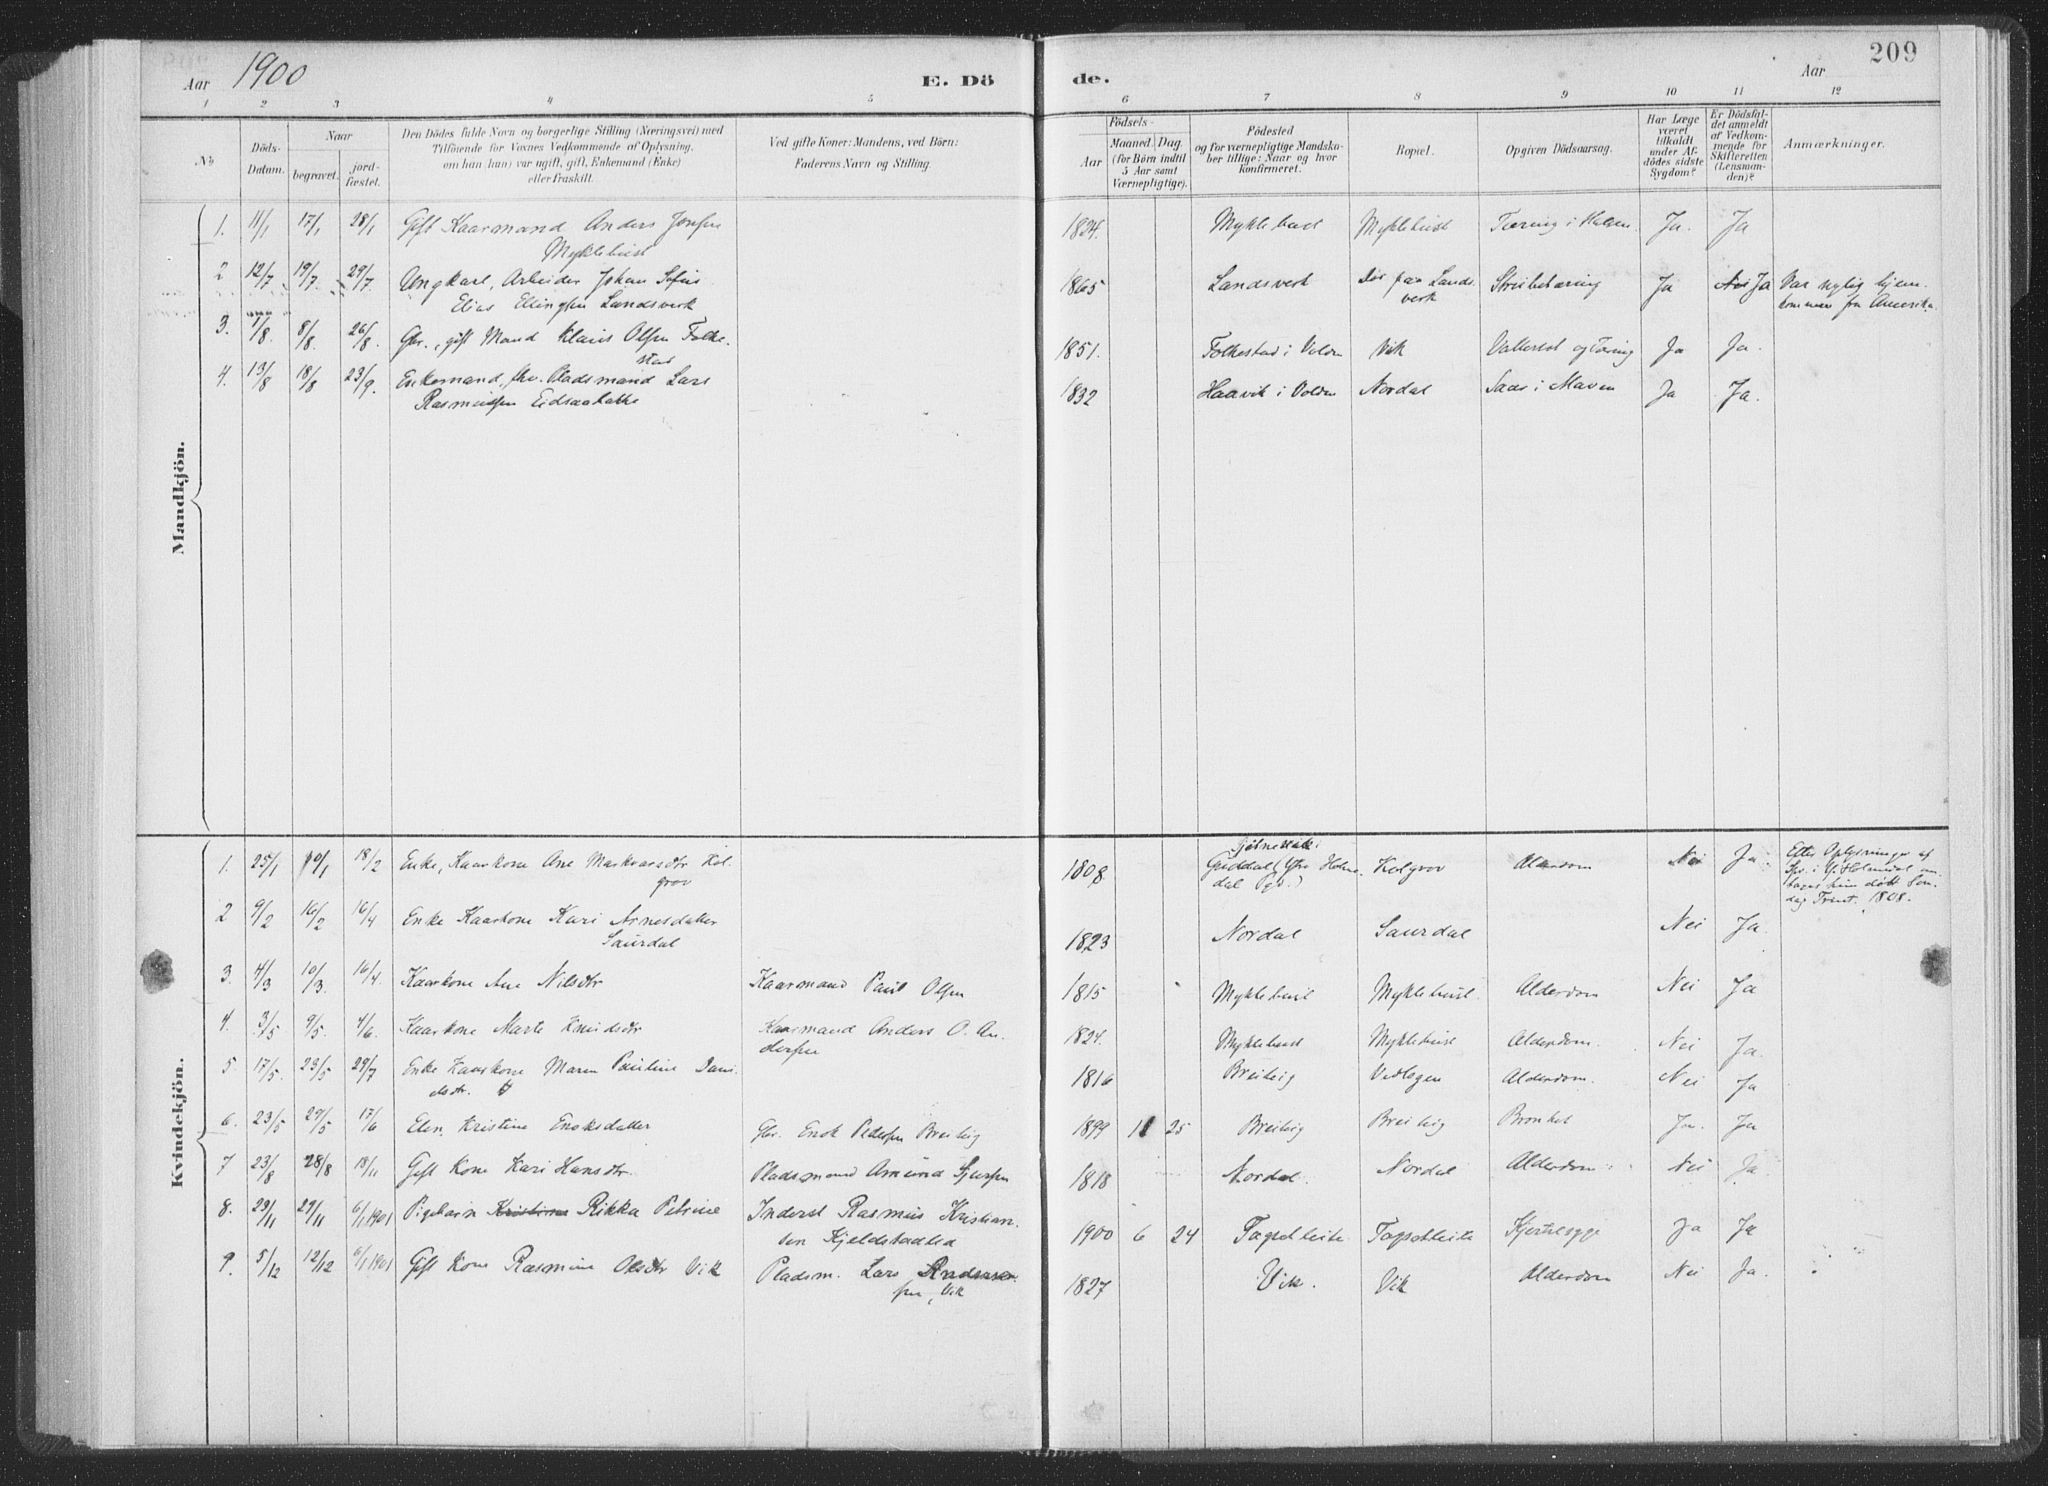 209
Aar 1900 E. Dö de. Aar
1 2 3 4 5 6 7 8 9 10 11 12
No Döds-Datum. Naar begravet. jord-fæstet. Den Dödes fulde Navn og borgerlige Stilling (Næringsvei) med Tilföiende for Voxnes Vedkommende af Oplysning, om han (hun) var ugift, gift, Enkemand (Enke) eller fraskilt. Ved gifte Koner: Mandens, ved Börn: Faderens Navn og Stilling. Födsels- Aar Maaned Dag (for Børn indtil 5 Aar samt Værnepligtige). Födested og for værnepligtige Mandskaber tillige: Naar og hvor konfirmeret. Bopæl. Opgiven Dödsaarsag. Har Læge været tilkaldt under Afdödes sidste Sygdom? Er Dödsfaldet anmeldt af Vedkommende for Skifteretten (Lensmanden)? Anmærkninger.
Mandkjön.
1. 11/1 17/1 28/1 Gift Kaarmand Anders Jonsen 1824. Myklebust Myklebust Tæring i Halsen Ja. Ja
Myklebust
2 12/7 19/7 29/7 Ungkarl, Arbeider Johan Sofus 1865 Landsverk paa Lands- Strubetæring Ja Nei Ja Var nylig hjem-
Elias Ellingsen Landsverk verk kommen fra Amerika.
3. 1/8 8/8 26/8 Gbr., gift Mand Klaus Olsen Folke- 1851. Folkestad i Volden Vik og Tæring Ja Ja.
stad
4. 13/8 18/8 23/9. Enkemand, fhv. Pladsmand Lars 1832 Haavik i Volden Nordal Saar i Maven Ja Ja.
Rasmussen Eidsaabakke
Kvindekjön.
1. 25/1 18/2 Enke, Kaarkone Ane Markvarsdtr Kol- 1808 Guddal (Ytre Holme- Kolgrov Alderdom Nei Ja. Efter Oplysninger af
grov dal Pgd.) Spr. i Y. Holmedal an-
tages hun døbt Søn-
dag Trint. 1808.
2 9/2 16/2 16/4 Enke Kaarkone Kari Arnesdatter 1823 Nordal Saurdal Nei Ja.
Saurdal
3. 4/3 10/3. 16/4. Kaarkone Ane Nilsdtr Kaarmand Paul Olsen 1815 Myklebust Myklebust. Alderdom Nei Ja
4. 3/5 9/5. 4/6. Kaarkone Marte Knudsdtr Kaarmand Anders O. An- 1824. Myklebust Myklebust Alderdom. Nei Ja.
dersen
5. 17/5. 23/5 29/7 Enke Kaarkone Maren Pauline Dani- 1816 Breiteig Vedlegen Alderdom. Nei Ja
elsdtr.
6. 23/5 29/5 17/6 Elen Kristine Enoksdatter Gbr. Enok Pedersen Breiteig 1899 11 25 Breiteig Breiteig Bronkit Ja. Ja
7 23/8 28/8 18/11 Gift Kone Kari Hansdtr. Pladsmand Amund Sjursen 1818 Nordal. Nordal Alderdom Nei Ja.
8. 23/11 29/11 6/1 1901 Pigebarn Kristine Rikka Petrine Inderst Rasmus Kristian- 1900 6 24 Tagsetleite Tagsetleite Kjertelsyge Ja Ja
sen Kjeldstadlea
9. 5/12 12/12 6/1 1901 Gift Kone Rasmine Olsdtr Vik Pladsm. Lars Anders- 1827 Vik. Vik Alderdom Nei Ja.
sen, Vik